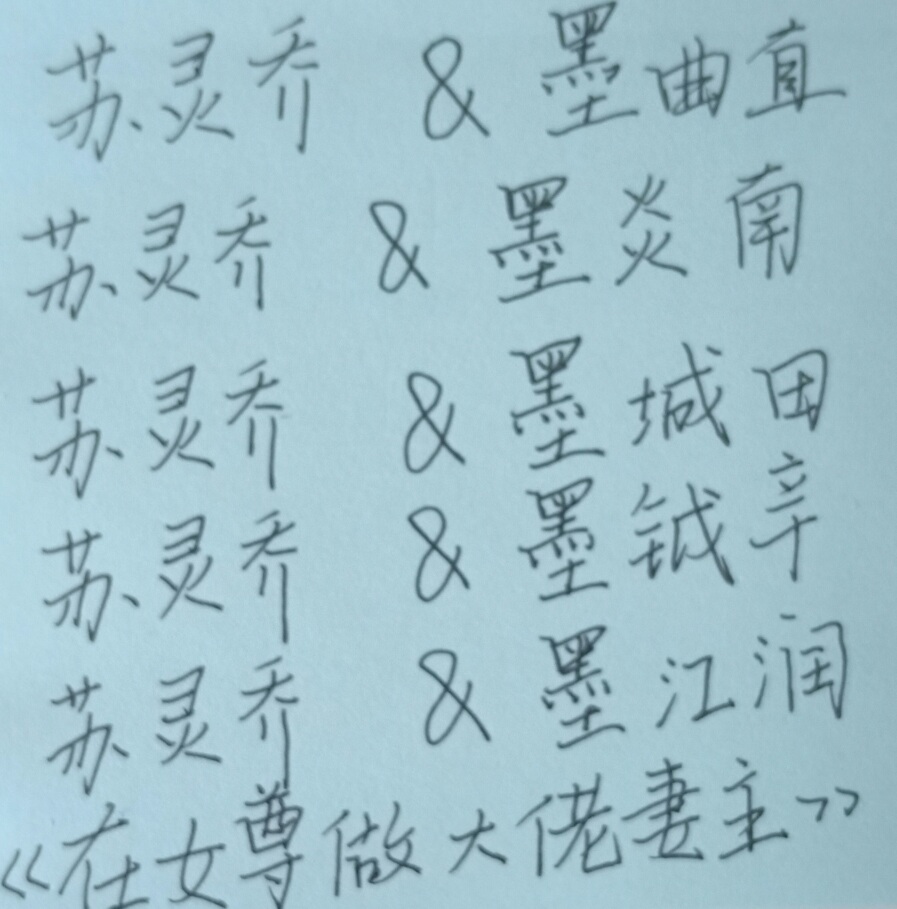 苏灵乔 & 墨曲直
苏灵乔 & 墨炎南
苏灵乔 & 墨城田
苏灵乔 & 墨钺辛
苏灵乔 & 墨江润
《在女尊做大佬妻主》